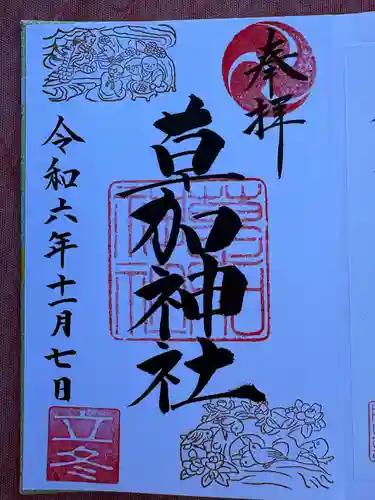 奉拝
草加神社
令和六年十一月七日
立冬